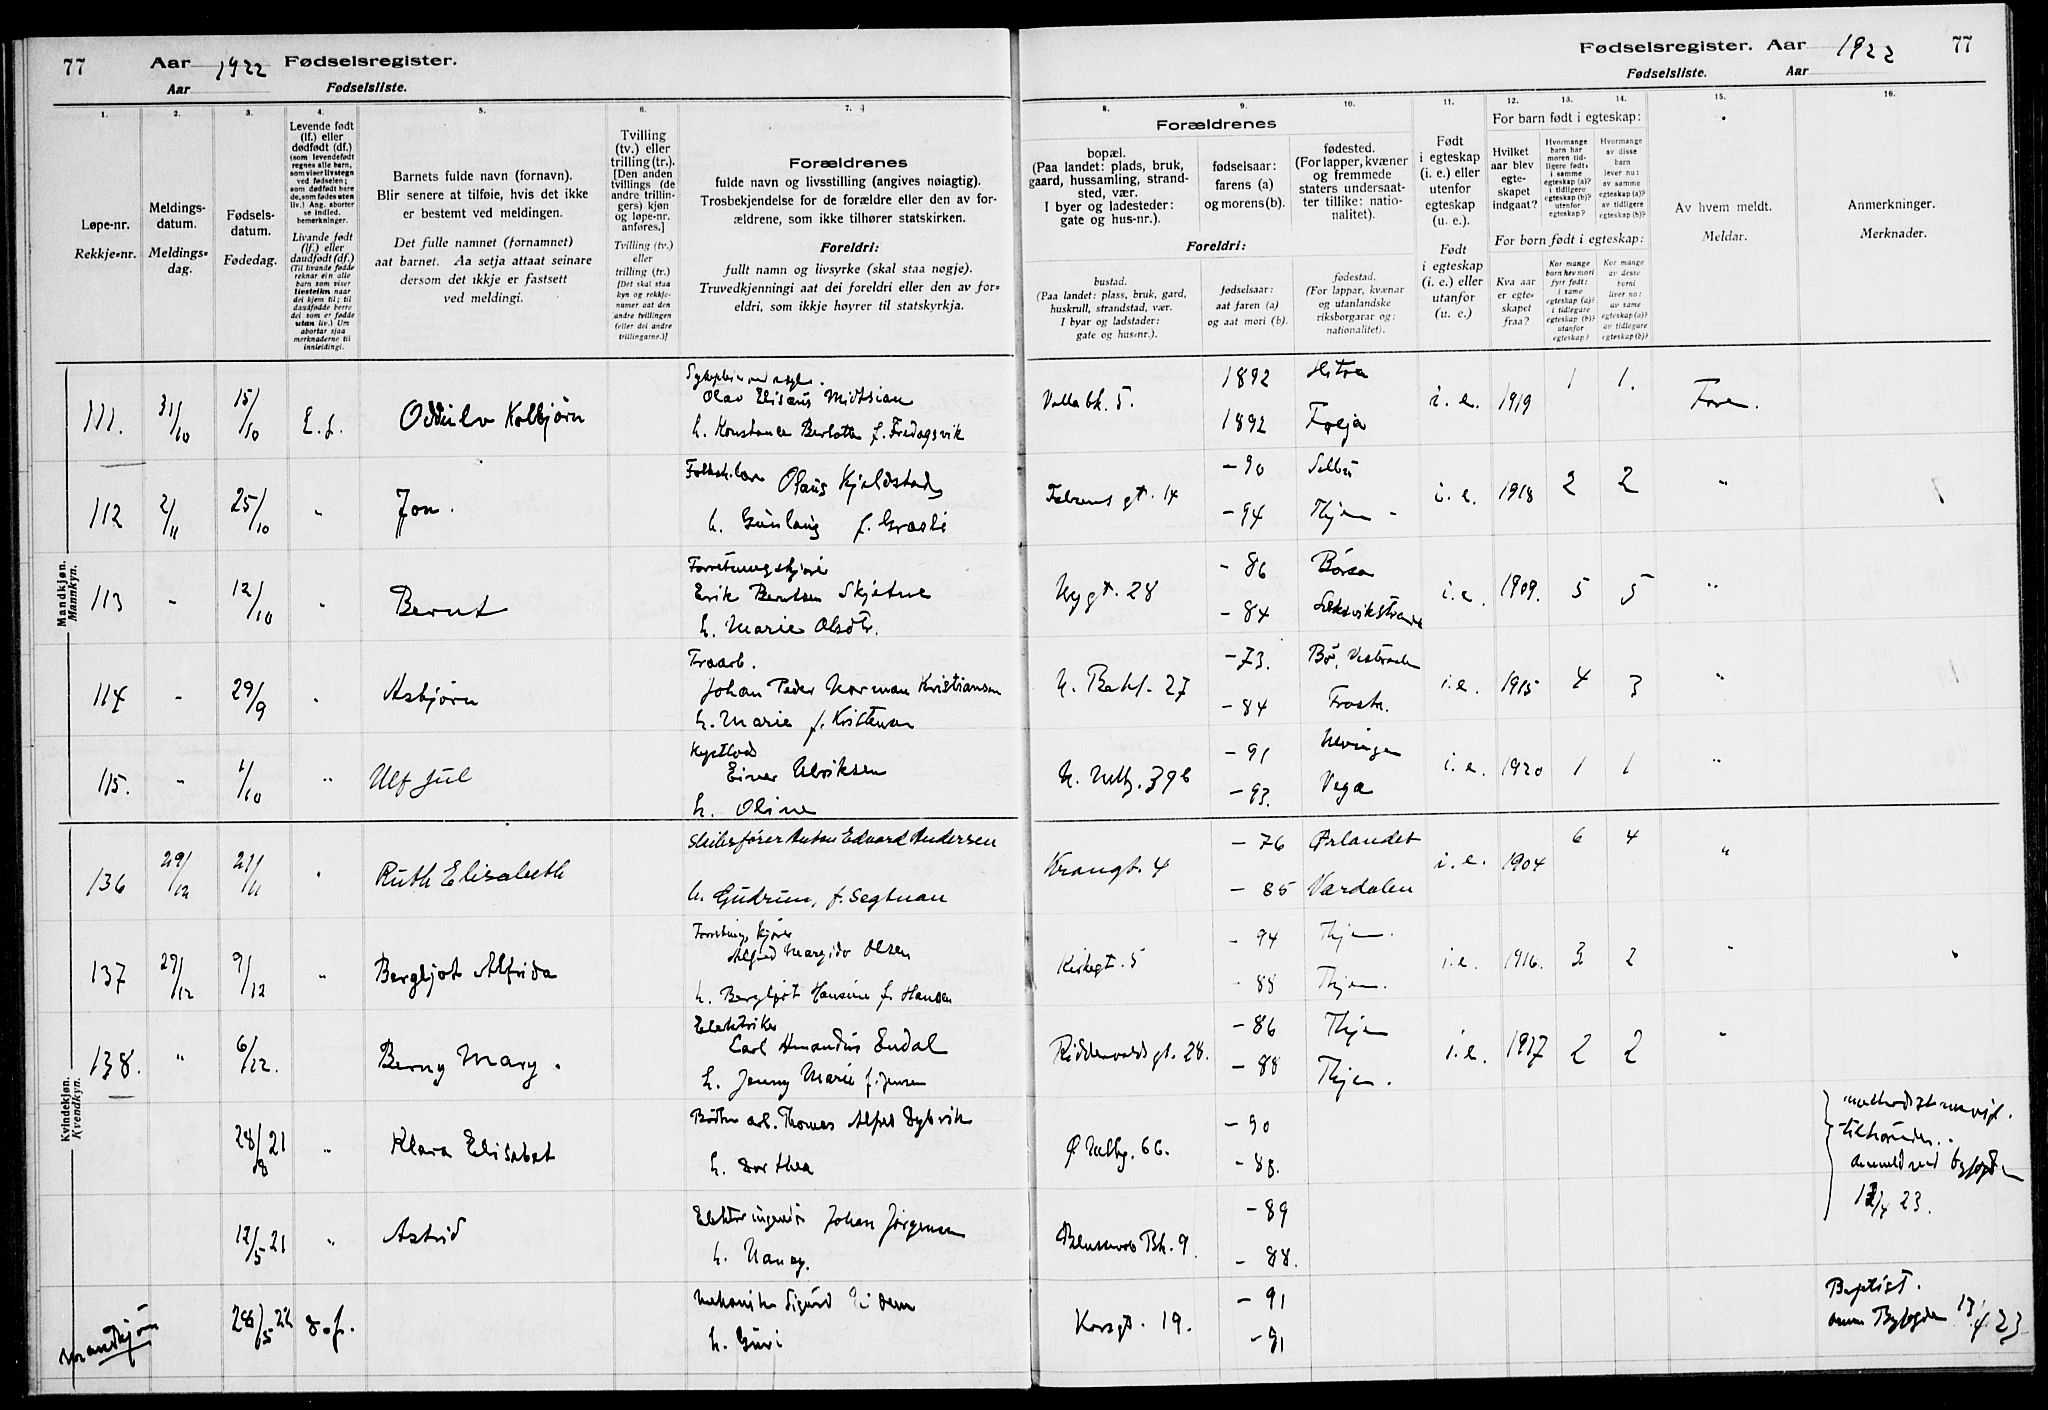 77 Aar 1922 Fødselsregister.
Aar Fødselsliste.
Fødselsregister. Aar 1922 77
Fødselsliste. Aar
1. 2. 3. 4. 5. 6. 7. 8. 9. 10. 11. 12. 13. 14. 15. 16.
Løpe-nr.
Rekkje-nr.
Meldings-
datum.
Meldings-
dag.
Fødsels-
datum.
Fødedag.
Levende født
(lf.) eller
dødfødt (df.)
(som levendefødt
regnes alle barn,
som viser livstegn
ved fødselen;
som dødfødt bare
de, som fødes uten
liv.) Ang. aborter
se indled.
bemerkninger.
Livande født
(lf.) eller
daudfødt (df.)
(Til livande fødde
reknar ein alle
barn som viser
livsteikn naar
dei kjem til; til
daudfødde berre
dei som er fødde
utan liv.) Um
abortar sjaa
merknaderne til
innleidingi.
Barnets fulde navn (fornavn).
Blir senere at tilføie, hvis det ikke
er bestemt ved meldingen.
Det fulle namnet (fornamnet)
aat barnet. Aa setja attaat seinare
dersom det ikkje er fastsett
ved meldingi.
Tvilling
(tv.) eller
trilling (tr.).
[Den anden
tvillings (de
andre trillin-
gers) kjøn
og løpe-nr.
anføres.]
Tvilling (tv.)
eller
trilling (tr.)
[Det skal staa
kyn og rekkje-
numer aat den
andre tvillingen
(eller dei andre
trillingarne.)]
Forældrenes
fulde navn og livsstilling (angives nøiagtig).
Trosbekjendelse for de forældre eller den av for-
ældrene, som ikke tilhører statskirken.
Foreldri:
fullt namn og livsyrke (skal staa nøgje).
Truvedkjenningi aat dei foreldri eller den av for-
eldri, som ikkje høyrer til statskyrkja.
Forældrenes
bopæl.
(Paa landet: plads, bruk,
gaard, hussamling, strand-
sted, vær.
I byer og ladesteder:
gate og hus-nr.).
fødselsaar:
farens (a)
og morens (b).
fødested.
(For lapper, kvæner
og fremmede
staters undersaat-
ter tillike: natio-
nalitet).
Foreldri:
bustad.
(Paa landet: plass, bruk, gard,
huskrull, strandstad, vær.
I byar og ladstader:
gate og hus-nr.).
fødselsaar:
aat faren (a)
og aat mori (b).
fødestad.
(For lappar, kvænar
og utanlandske
riksborgarar og :
nationalitet).
Født
i egteskap
(i. e.) eller
utenfor
egteskap
(u. e.).
Født
i egteskap
(i. e.) eller
utanfor
(u. e.)
For barn født i egteskap:
Hvilket
aar blev
egte-
skapet
indgaat?
Hvormange
barn har
moren tid-
ligere født:
i samme
egteskap (a)?
i tidligere
egteskap (b)?
utenfor
egteskap?
Hvormange
av disse
barn
lever nu:
av samme
egteskap (a)?
av tidligere
egteskap (b)?
For born født i egteskap:
Kva aar
er egte-
skapet
fraa?
Kor mange
born hev mori
fyrr født:
i same
egteskap (a)?
i tidlegare
egteskap (b)?
utanfor
egteskap?
Kor mange
av desse
borni
liver no:
av same
egteskap (a)?
av tidlegare
egteskap (b)?
Av hvem meldt.
Meldar.
Anmerkninger.
Merknader.
Mandkjøn.
Mannkyn.
111. 31/10 15/10 Oddulv Kolbjørn
Olav Eliseus Midtsian
h. Konstance Berlotte f. Fredagsvik
5. 1892 Hitra
1892 i. e. 1919 1 1.
112 2/11 25/10 " Jon.
Olaus Kjeldstad
h. Gunlaug f. Græsli
gt. 14 -90 Selbu
-94 Thjem - i. e. 1918 2 2 "
113 - 12/10 " Bernt
Forretningskjører
Erik Berntsen Skjetne
h. Marie Olsdtr.
Nygt. 28 - 86 Børsa
- 84 i. e. 1909. 5 5 "
114 - 29/9 " Asbjørn
Johan Peder Norman Kristiansen
h. Marie f. Kristensen
27 -73. Bø,
-84 Frosta. i. e. 1915 4 3 "
115. - 1/10 " Ulf Jul
Einar Ulriksen
h. Oline
39b - 91
-93. Vega i. e. 1920 1 1 "
Kvindekjøn.
Kvendkyn.
136 29/12 21/11 " Ruth Elisabeth
Anton Edvard Andersen
h. Gudrun, f. Segtnan
Krangt. 4 - 76 Ørlandet
- 85 Værdalen i. e. 1904 6 4 "
137 29/12 9/12 " Bergljot Alfrida
Alfred Margido Olsen
h. Bergljot Hansine f. Hansen
Kirkegt. 5 - 94 Thjem.
- 88 Thjem. i. e. 1916. 3 2 "
138. " 6/12. Berny Mary.
Elektriker
Carl Amandus Endal
h. Jenny Marie f. Jensen
Riddervoldsgt. 28. -86 Thjem
- 88 Thjem. i. e. 1917 2 2 "
28/8 21 " Klara Elisabet
Thomas Alfred Dybvik
h. Dorthea
66. -90
-88.
tilhørende.
12/4 23.
12/5 21 " Astrid
Johan Jørgensen
h. Nancy.
Bk. 9. -89
- 88.
Mandkjøn
28/5 22 d. f.
Sigurd
h. Guri
Korsgt. 19. - 91
-91
Baptist.
13/4 23